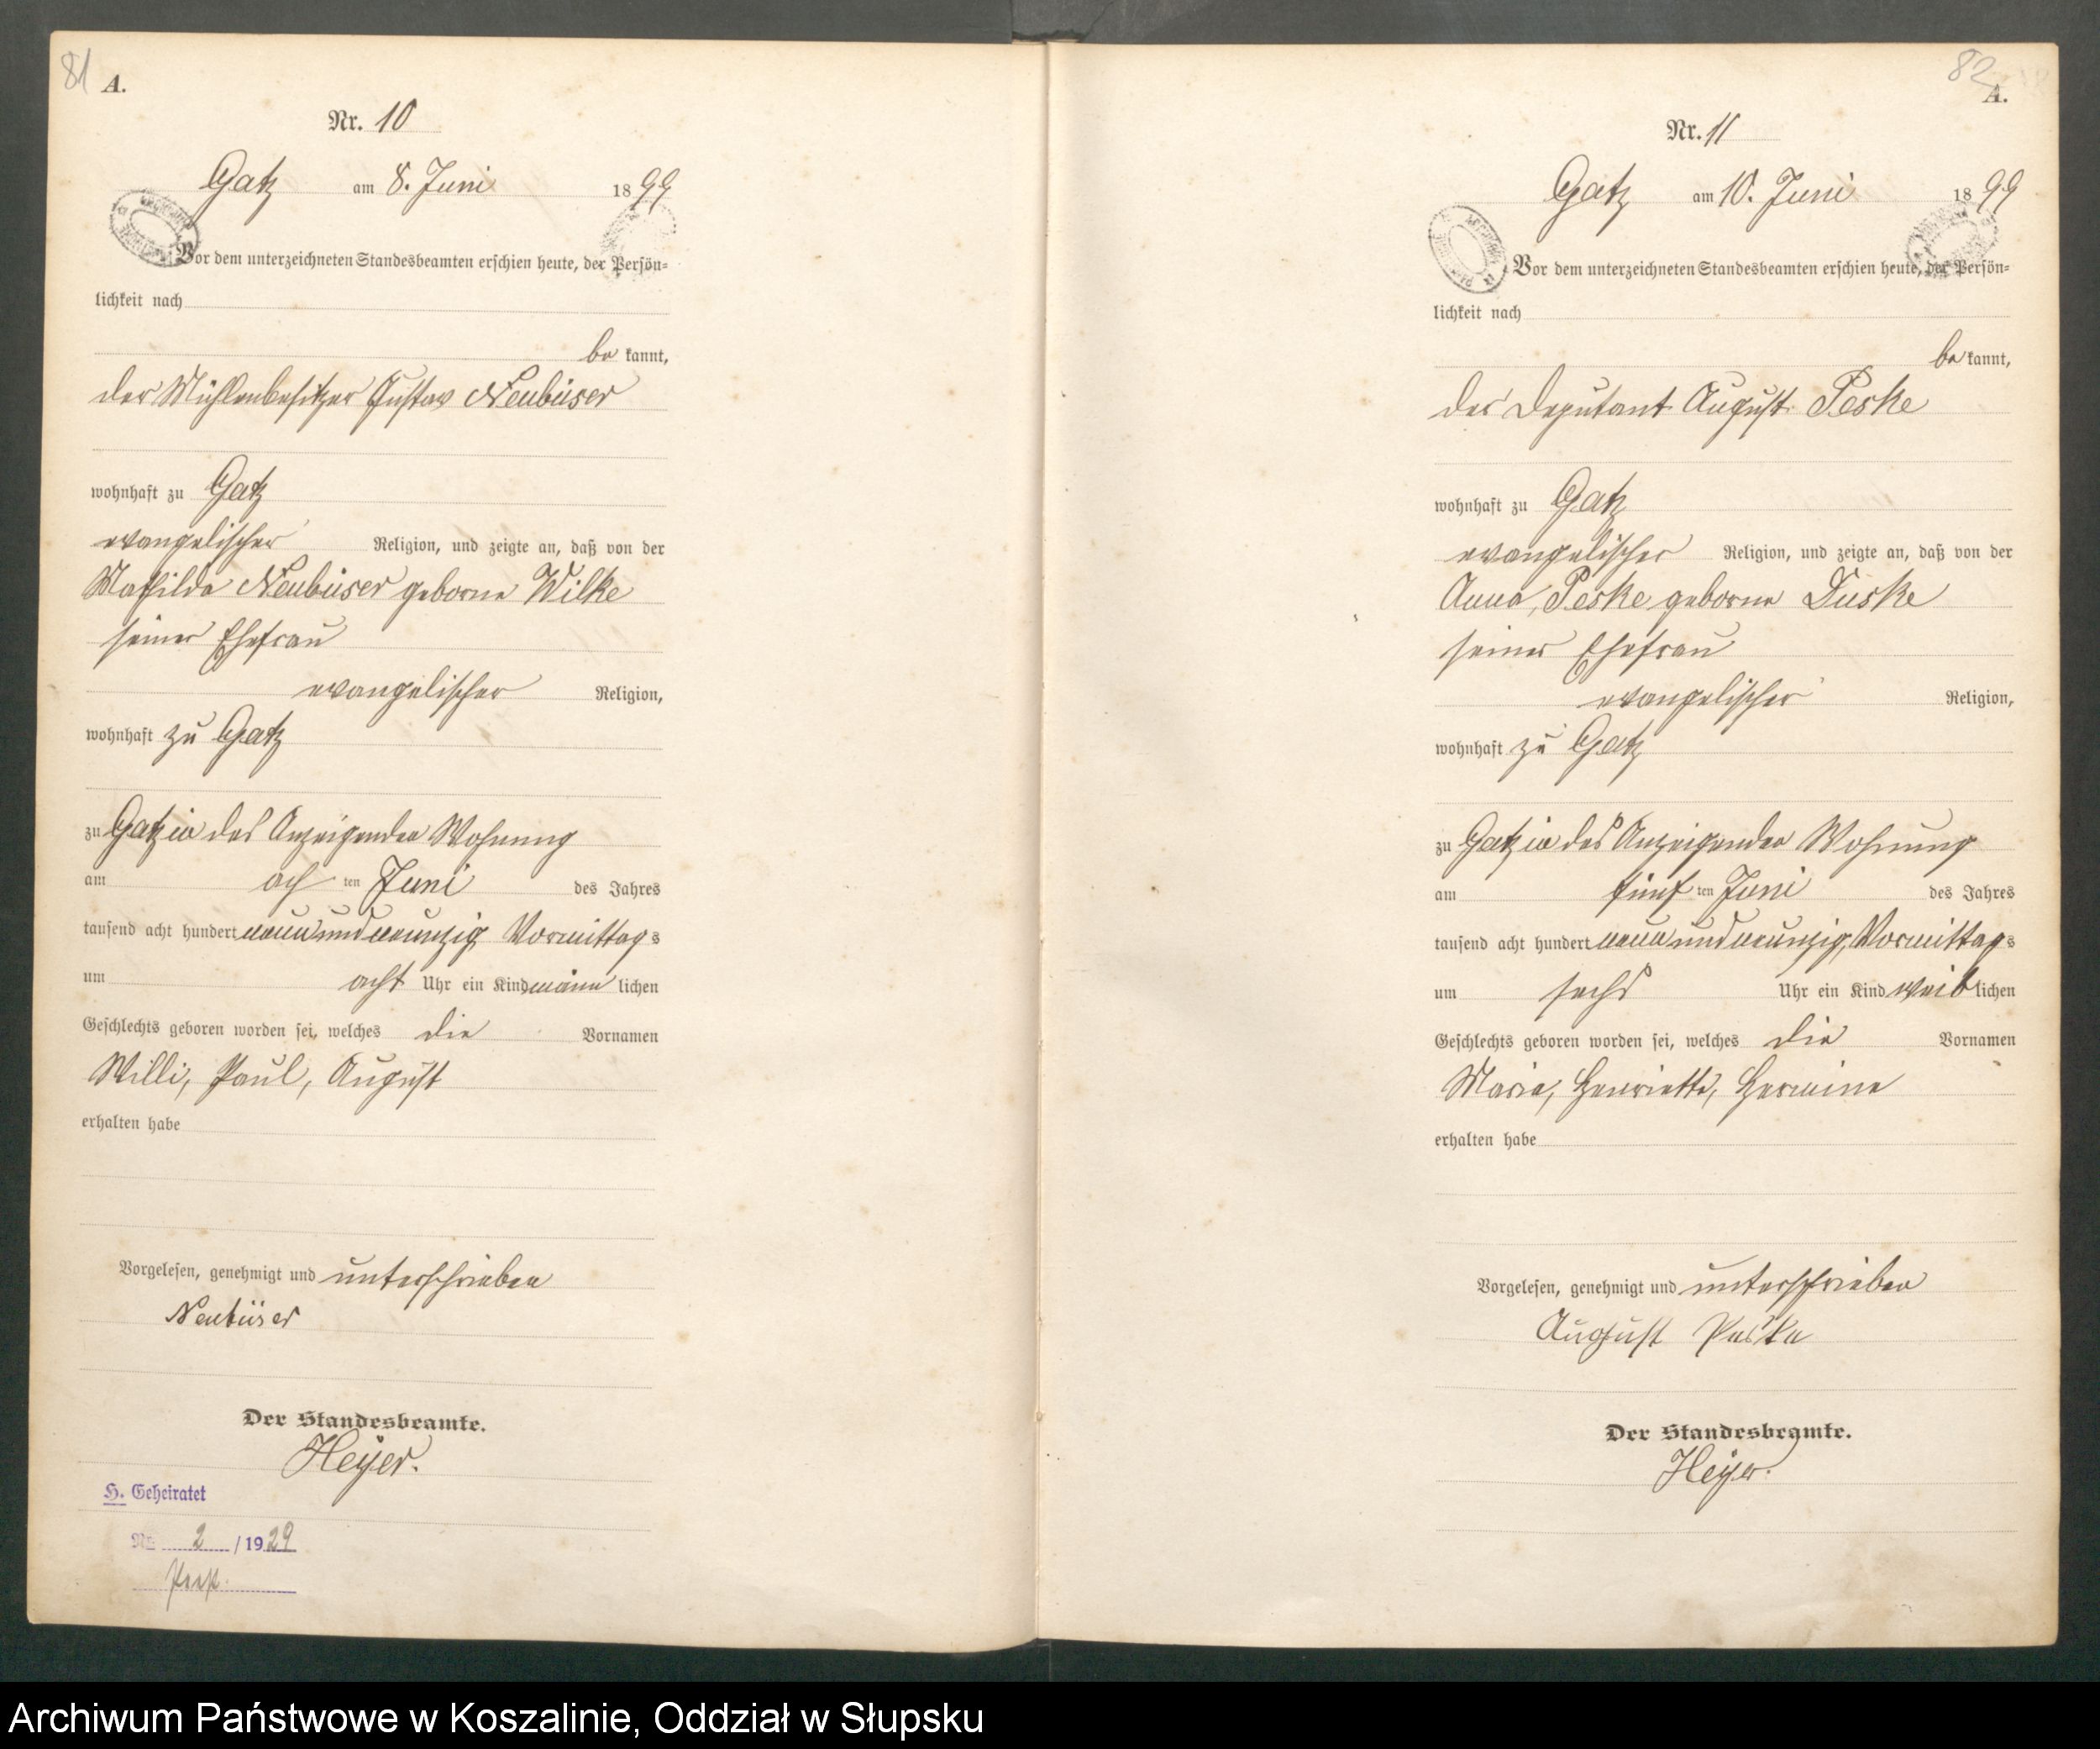 81
A.
Nr. 10
Gatz am 8. Juni 1899
Vor dem unterzeichneten Standesbeamten erschien heute, der Persön=
lichkeit nach
be kannt,
der Mühlenbesitzer Gustav Neubüser
wohnhaft zu Gatz
evangelischer Religion, und zeigte an, daß von der
Mathilde Neubüser geborne Wilke
seiner Ehefrau
evangelischer Religion,
wohnhaft zu Gatz
zu Gatz in des Anzeigenden Wohnung
am ach ten Juni des Jahres
tausend acht hundert neunundneunzig Vormittag s
um acht Uhr ein Kind männ lichen
Geschlechts geboren worden sei, welches die Vornamen
Willi, Paul, August
erhalten habe
Vorgelesen, genehmigt und unterschrieben
Neubüser
Der Standesbeamte.
Heyer.
H. Geheiratet
Nr. 2 / 1929
82
A.
Nr. 11
Gatz am 10. Juni 1899
Vor dem unterzeichneten Standesbeamten erschien heute, der Persön=
lichkeit nach
be kannt,
der Deputant August Peske
wohnhaft zu Gatz
evangelischer Religion, und zeigte an, daß von der
Anna, Peske geborne Duske
seiner Ehefrau
evangelischer Religion,
wohnhaft zu Gatz
zu Gatz in des Anzeigenden Wohnung
am fünf ten Juni des Jahres
tausend acht hundert neunundneunzig, Vormittag s
um sechs Uhr ein Kind weib lichen
Geschlechts geboren worden sei, welches die Vornamen
Marie, Henriette, Hermine
erhalten habe
Vorgelesen, genehmigt und unterschrieben
August Peske
Der Standesbeamte.
Heyer.
Archiwum Państwowe w Koszalinie, Oddział w Słupsku